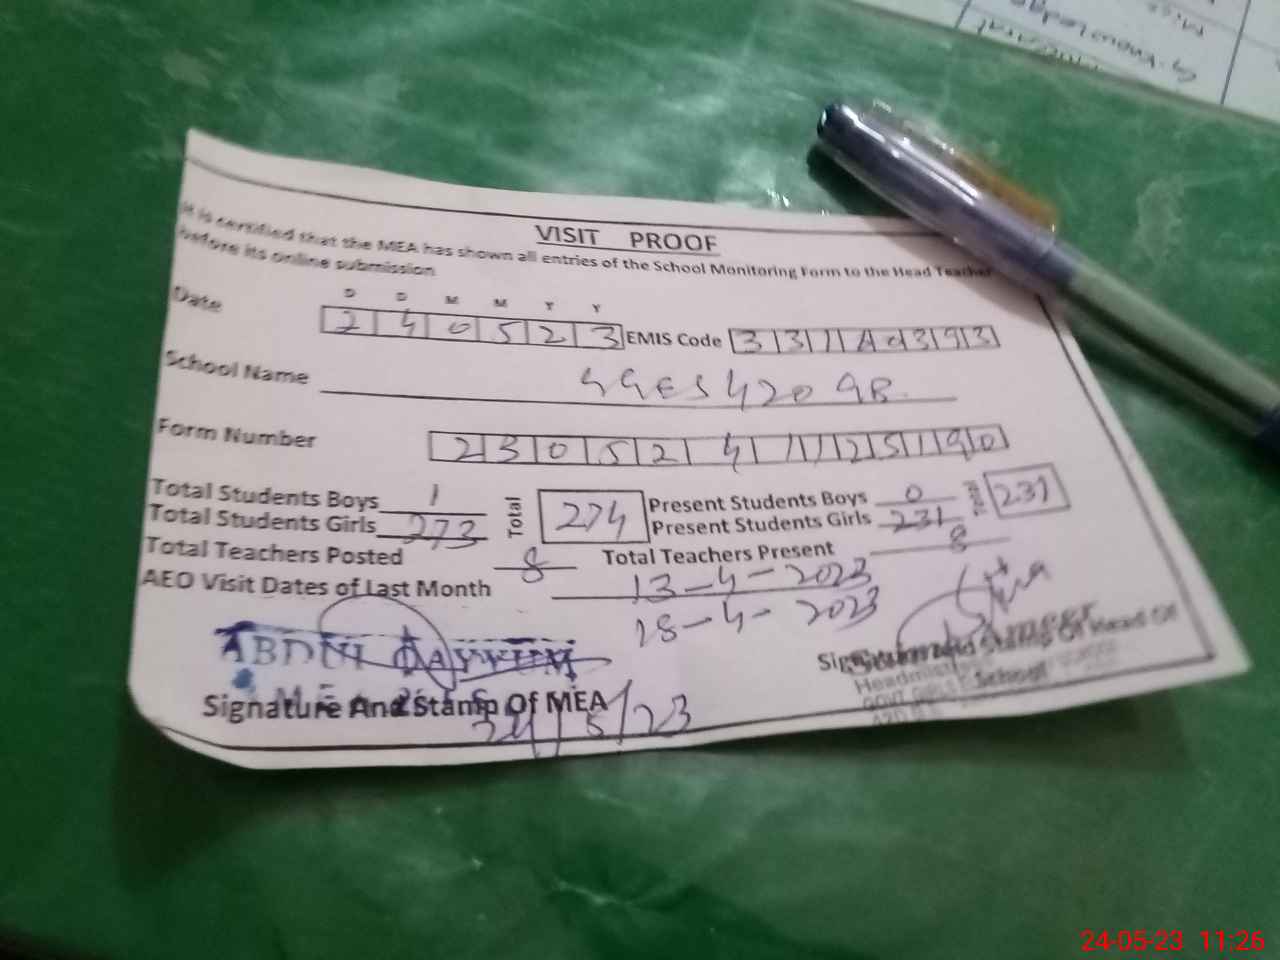 Knowledge
VISIT PROOF
It is certified that the MEA has shown all entries of the School Monitoring Form to the Head Teacher
before its online submission
D D M M Y Y
Date 2 4 0 5 2 3 EMIS Code
School Name GGES 420 GB
Form Number 2 3 0 5 2 4 1 1 2 5 1 9 0
Total Students Boys 1 Total 274 Present Students Boys 0 231
Total Students Girls 273 Present Students Girls 231
Total Teachers Posted 8 Total Teachers Present 8
AEO Visit Dates of Last Month 13-4-2023
18-4-2023
ABDUL QAYYUM
Signature And Stamp Of MEA
24/5/23
Signature and Stamp Of Head Of
School
Headmistress
GOVT GIRLS
24-05-23 11:26